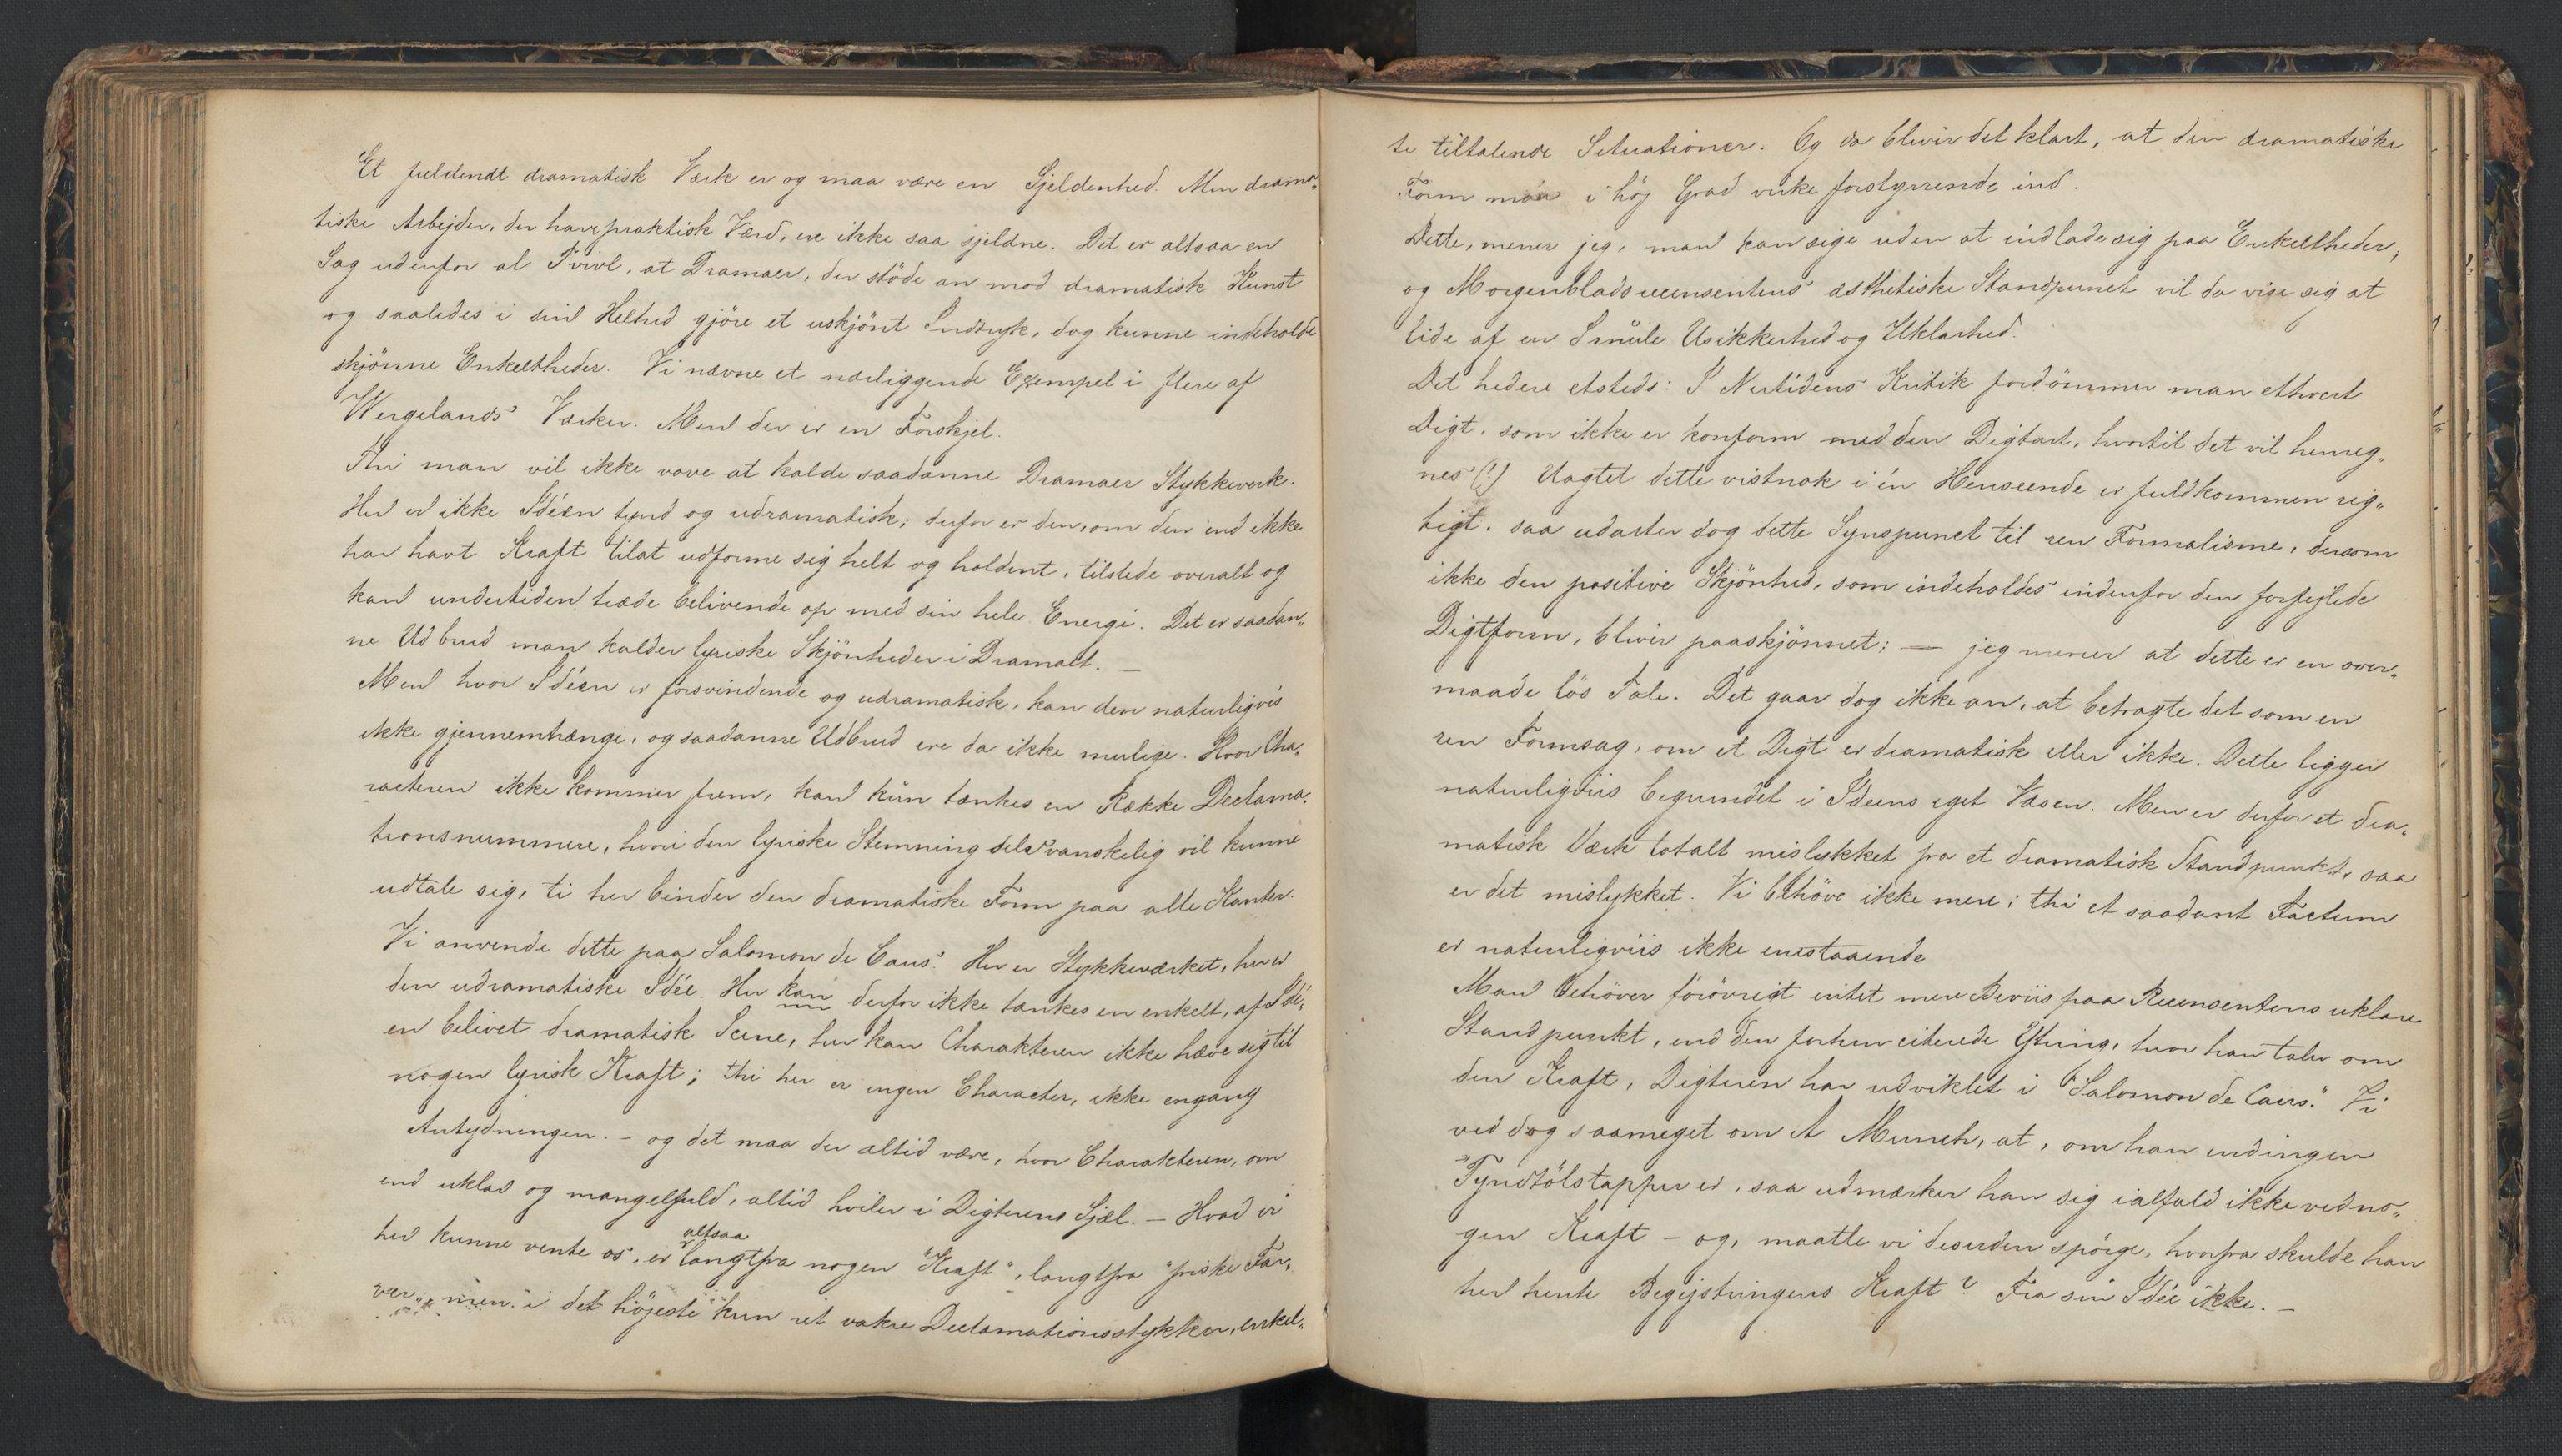 Et fuldendt dramatisk Værk er og maa være en Sjeldenhed. Men drama„
tiske Arbejder, der have praktisk Værd, ere ikke saa sjeldne. Det er altsaa en
Sag udenfor al Tvivl, at Dramaer, der støde an mod dramatisk Kunst
og saaledes i sin Helhed gjøre et uskjønt Indtryk, dog kunne indeholde
skjønne Enkeltheder. Vi nævne et nærliggende Exempel i flere af
Wergelands Værker. Men der er en Forskjel.
Thi man vil ikke vove at kalde saadanne Dramaer Stykkeverk.
Her er ikke Idéen tynd og udramatisk; derfor er den, om den end ikke
har havt Kraft tilat udforme sig helt og holdent, tilstede overalt og
kan undertiden træde belivende op med sin hele Energi. Det er saadan„
ne Udbrud man kalder lyriske Skjønheder i Dramaet. —
Men hvor Idéen er forsvindende og udramatisk, kan den naturligvis
ikke gjennemtrænge, og saadanne Udbrud ere da ikke mulige. Hvor Cha„
racteren ikke kommer frem, kan kun tænkes en Række Declama„
tionsnummere, hvori den lyriske Stemning selv vanskelig vil kunne
udtale sig; ti her binder den dramatiske Form paa alle Kanter.
Vi anvende dette paa Salomon de Caus. Her er Stykkeværket, her er
den udramatiske Idée. Her kan derfor ikke tænkes en enkelt, af Idé„
en belivet dramatisk Scene, her kan Charakteren ikke hæve sig til
nogen lyrisk Kraft; thi her er ingen Character, ikke engang
Antydningen. – og det maa der altid være, hvor Charakteren, om
end uklar og mangelfuld, altid hviler i Digterens Sjæl. – Hvad vi
her kunne vente os, er altsaa langtfra nogen "Kraft", langtfra "friske Far„
ver", men i det højeste kun ret vakre Declamationsstykker, enkel„
te tiltalende Situationer. Og da bliver det klart, at den dramatiske
Form maa i høj Grad virke forstyrrende ind.
Dette, mener jeg, man kan sige uden at indlade sig paa Enkeltheder,
og Morgenbladsrecensentens æsthetiske Standpunct vil da vise sig at
lide af en Smule Usikkerhed og Uklarhed.
Det hedere etsteds: I Nutidens Kritik fordømmer man ethvert
Digt, som ikke er konform med den Digtart, hvortil det vil henreg„
nes (!) Uagtet dette vistnok i én Henseende er fuldkommen rig„
tigt, saa udarter dog dette Synspunct til ren Formalisme, dersom
ikke den positive Skjønhed, som indeholdes indenfor den forfejlede
Digtform, bliver paaskjønnet; — jeg mener at dette er en over„
maade løs Tale. Det gaar dog ikke an, at betragte det som en
ren Formsag, om et Digt er dramatisk eller ikke. Dette ligger
naturligviis begrundet i Ideens eget Væsen. Men er derfor et dra„
matisk Værk totalt mislykket fra et dramatisk Standpunkt, saa
er det mislykket. Vi behøve ikke mere; thi et saadant Factum
er naturligviis ikke enestaaende
Man behøver forøvrigt intet mere Beviis paa Recensentens uklare
Standpunkt, end den forhen citerede Ytring, hvor han taler om
den Kraft, Digteren har udviklet i "Salomon de Caus." Vi
ved dog saameget om A Munch, at, om han end ingen
"Tyndtølstapper er, saa udmærker han sig ialfald ikke ved no„
gen Kraft – og, maatte vi desuden spørge, hvorfra skulde han
her hente Begejstringens Kraft? Fra sin Idée ikke. –